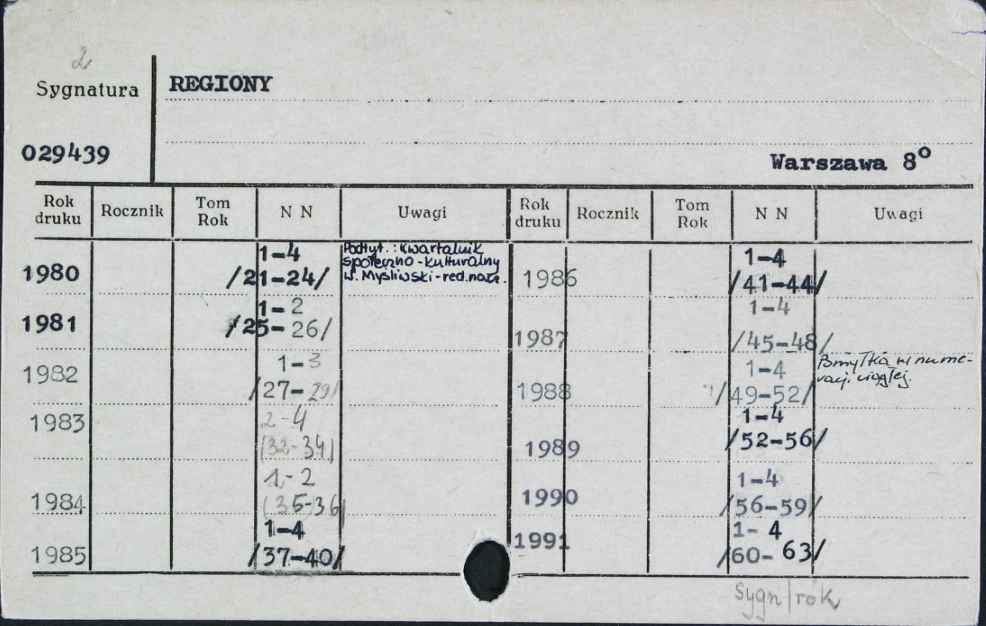 2
Sygnatura
REGIONY
029439
Warszawa 8°
Rok druku Rocznik Tom Rok N N Uwagi Rok druku Rocznik Tom Rok N N Uwagi
1980 1-4 /21-24/ Podtyt.: Kwartalnik
społeczno-kulturalny
W. Myśliwski-red.nacz.
1981 1-2 /25-26/
1982 1-3 /27-29/
1983 2-4 (32-34)
1984 1-2 (35-36)
1985 1-4 /37-40/
1986 1-4 /41-44/
1987 1-4 /45-48/
1988 1-4 /49-52/ Pomyłka w nume-
racji ciągłej.
1989 1-4 /52-56/
1990 1-4 /56-59/
1991 1-4 /60-63/
Sygn/rok